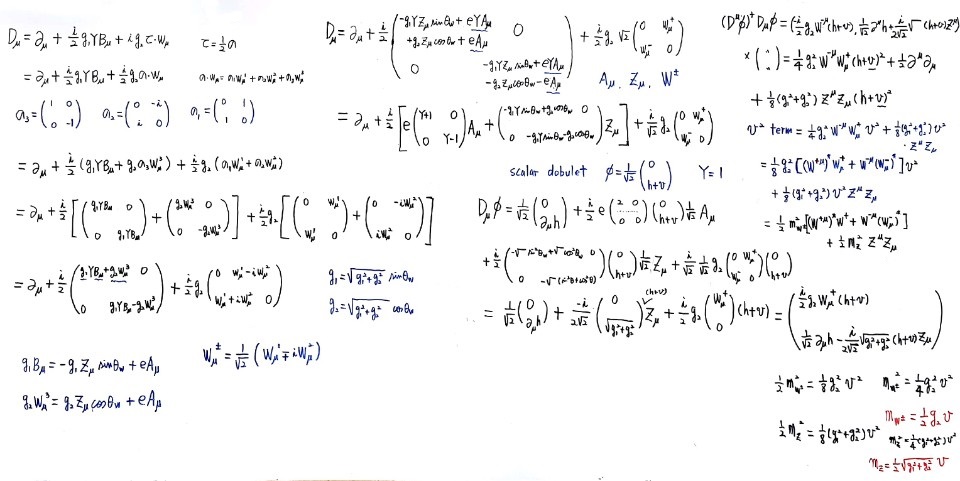 D_μ = ∂_μ + i/2 g₁YB_μ + i g₂ τ·W_μ    τ = ½σ
= ∂_μ + i/2 g₁YB_μ + i/2 g₂ σ·W_μ    σ·W_μ = σ₁W_μ¹ + σ₂W_μ² + σ₃W_μ³
σ₃ = (1 0; 0 -1)  σ₂ = (0 -i; i 0)  σ₁ = (0 1; 1 0)
= ∂_μ + i/2 (g₁YB_μ + g₂σ₃W_μ³) + i/2 g₂ (σ₁W_μ¹ + σ₂W_μ²)
= ∂_μ + i/2 [(g₁YB_μ 0; 0 g₁YB_μ) + (g₂W_μ³ 0; 0 -g₂W_μ³)] + i/2 g₂ [(0 W_μ¹; W_μ¹ 0) + (0 -iW_μ²; iW_μ² 0)]
= ∂_μ + i/2 (g₁YB_μ + g₂W_μ³ 0; 0 g₁YB_μ - g₂W_μ³) + i/2 g₂ (0 W_μ¹ - iW_μ²; W_μ¹ + iW_μ² 0)
g₁ = √(g₁²+g₂²) sinθ_w
g₂ = √(g₁²+g₂²) cosθ_w
g₁B_μ = -g₁Z_μ sinθ_w + eA_μ
g₂W_μ³ = g₂Z_μ cosθ_w + eA_μ
W_μ^± = 1/√2 (W_μ¹ ∓ iW_μ²)
D_μ = ∂_μ + i/2 (-g₁YZ_μ sinθ_w + eYA_μ + g₂Z_μ cosθ_w + eA_μ 0; 0 -g₁YZ_μ sinθ_w + eYA_μ - g₂Z_μ cosθ_w - eA_μ) + i/2 g₂ √2 (0 W_μ⁺; W_μ⁻ 0)
A_μ, Z_μ, W^±
= ∂_μ + i/2 [e (Y+1 0; 0 Y-1) A_μ + (-g₁Y sinθ_w + g₂cosθ_w 0; 0 -g₁Y sinθ_w - g₂cosθ_w) Z_μ] + i/√2 g₂ (0 W_μ⁺; W_μ⁻ 0)
scalar dobulet  φ = 1/√2 (0; h+v)  Y = 1
D_μφ = 1/√2 (0; ∂_μh) + i/2 e (2 0; 0 0) (0; h+v) 1/√2 A_μ
+ i/2 (-√ sin²θ_w + √ cos²θ_w 0; 0 -√ (sin²θ + cos²θ)) (0; h+v) 1/√2 Z_μ + i/√2 1/√2 g₂ (0 W_μ⁺; W_μ⁻ 0) (0; h+v)
= 1/√2 (0; ∂_μh) + -i/2√2 (0; √(g₁²+g₂²)) (h+v) Z_μ + i/2 g₂ (W_μ⁺; 0) (h+v) = (i/2 g₂ W_μ⁺ (h+v); 1/√2 ∂_μh - i/2√2 √(g₁²+g₂²) (h+v) Z_μ)
(D^μφ)⁺ D_μφ = (-i/2 g₂ W^{-μ} (h+v), 1/√2 ∂^μh + i/2√2 √ (h+v) Z^μ)
× ( : ) = ¼ g₂² W^{-μ} W_μ⁺ (h+v)² + ½ ∂^μ ∂_μ
+ ⅛ (g₁²+g₂²) Z^μ Z_μ (h+v)²
v² term = ¼ g₂² W^{-μ} W_μ⁺ v² + ⅛ (g₁²+g₂²) v² · Z^μ Z_μ
= ⅛ g₂² [(W^{+μ})* W_μ⁺ + W^{-μ} (W_μ⁻)*] v²
+ ⅛ (g₁²+g₂²) v² Z^μ Z_μ
= ½ m_{W±}² [(W^{+μ})* W⁺ + W^{-μ} (W_μ⁻)*]
+ ½ m_Z² Z^μ Z_μ
½ m_{W±}² = ⅛ g₂² v²    m_{W±}² = ¼ g₂² v²
m_{W±} = ½ g₂ v
½ m_Z² = ⅛ (g₁²+g₂²) v²    m_Z² = ¼ (g₁²+g₂²) v²
m_Z = ½ √(g₁²+g₂²) v